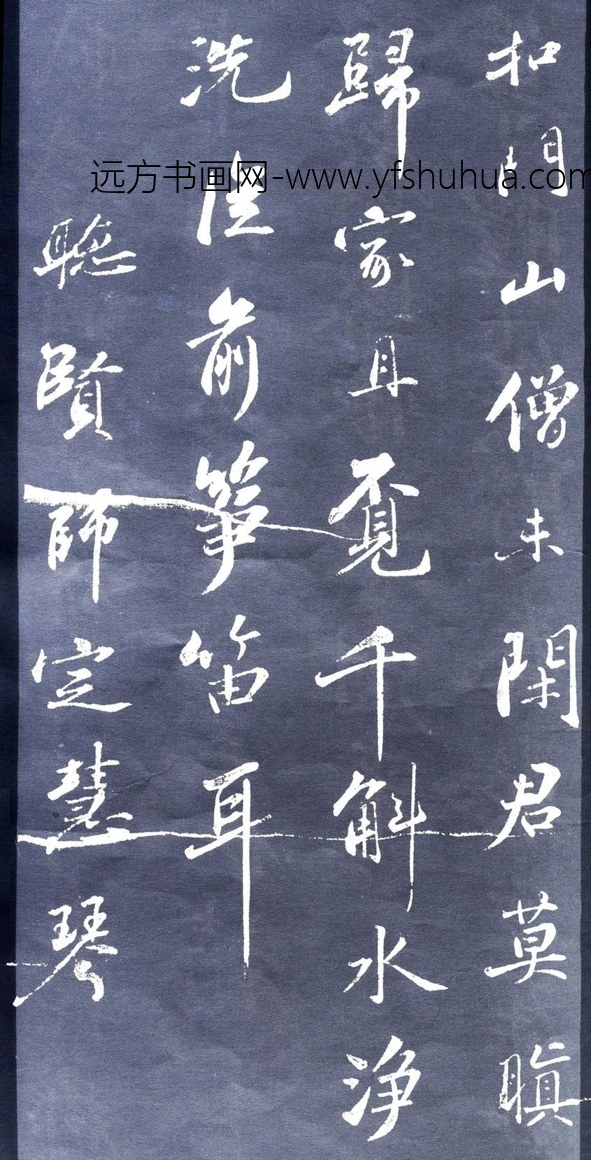 扣門山僧未閑君莫瞋
歸家且覔千斛水浄
洗従前箏笛耳
聴賢師定慧琴
远方书画网-www.yfshuhua.com